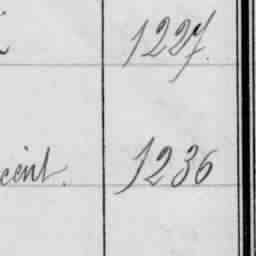 1227.
cent. 1236